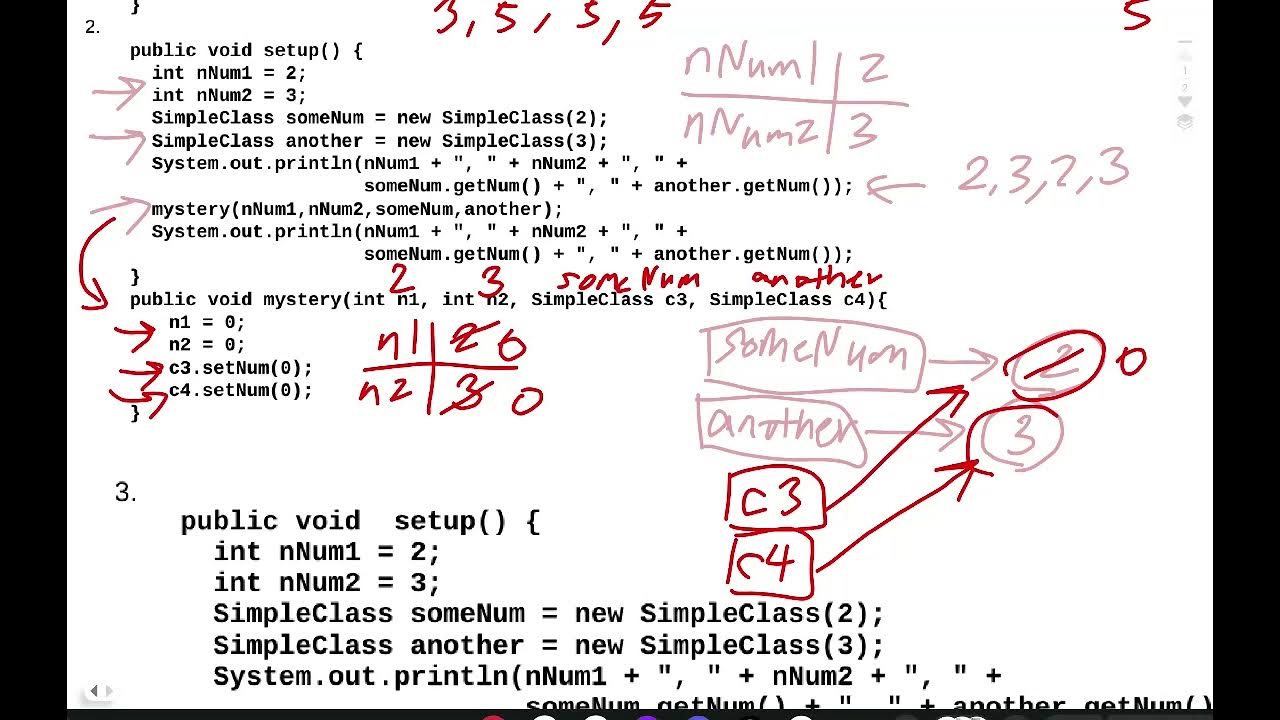 }
3, 5, 3, 5
5
2.
public void setup() {
int nNum1 = 2;
int nNum2 = 3;
SimpleClass someNum = new SimpleClass(2);
SimpleClass another = new SimpleClass(3);
System.out.println(nNum1 + ", " + nNum2 + ", " +
someNum.getNum() + ", " + another.getNum());
mystery(nNum1,nNum2,someNum,another);
System.out.println(nNum1 + ", " + nNum2 + ", " +
someNum.getNum() + ", " + another.getNum());
}
nNum1 2
nNum2 3
2,3,2,3
2 3 someNum another
public void mystery(int n1, int n2, SimpleClass c3, SimpleClass c4){
n1 = 0;
n2 = 0;
c3.setNum(0);
c4.setNum(0);
}
n1 2 0
n2 3 0
someNum 2 0
another 3
c3
c4
3.
public void setup() {
int nNum1 = 2;
int nNum2 = 3;
SimpleClass someNum = new SimpleClass(2);
SimpleClass another = new SimpleClass(3);
System.out.println(nNum1 + ", " + nNum2 + ", " +
someNum.getNum() + ", " + another.getNum()
1
2